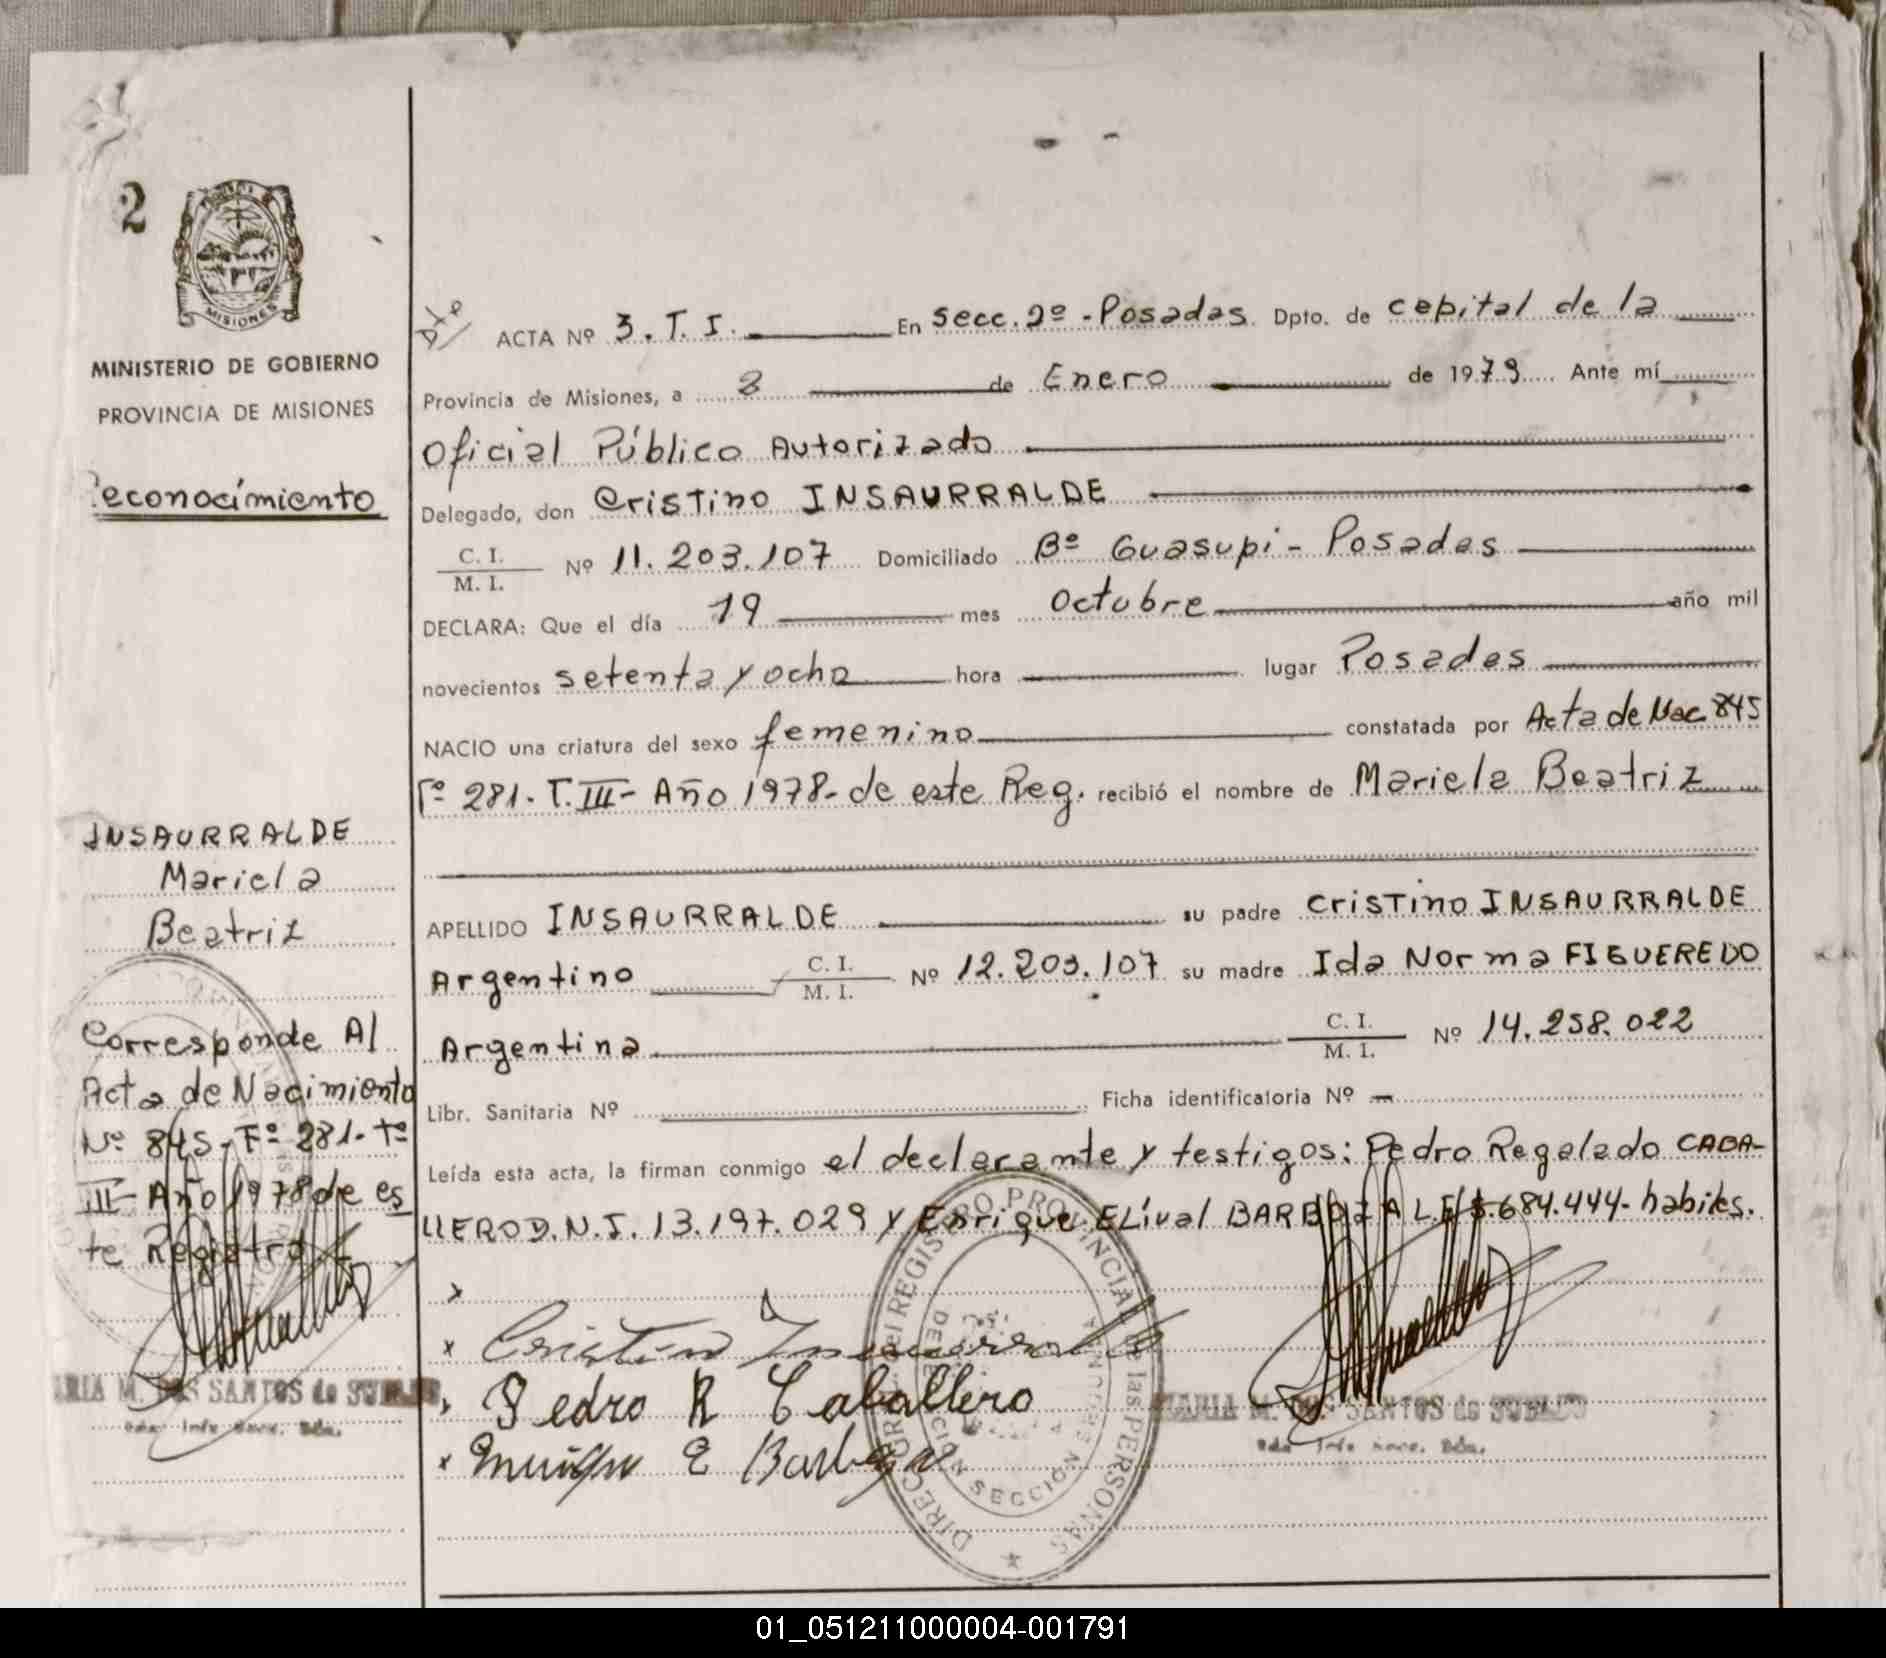 2
MISIONES
MINISTERIO DE GOBIERNO
PROVINCIA DE MISIONES
Reconocimiento
INSAURRALDE
Mariela
Beatriz
Corresponde Al
Acta de Nacimiento
Nº 845-Fº 281-Tº
III-Año 1978 de es
te Registro
ARIA M. DOS SANTOS de
Dte
ACTA Nº 3.T.I. En secc. 2º - Posadas Dpto. de capital de la
Provincia de Misiones, a 8 de Enero de 1979 Ante mí
Oficial Público Autorizado
Delegado, don Cristino INSAURRALDE
C. I.
M. I. Nº 11.203.107 Domiciliado Bº Guasupi - Posadas
DECLARA: Que el día 19 mes Octubre año mil
novecientos setenta y ocho hora lugar Posadas
NACIO una criatura del sexo femenino constatada por Acta de Nac 845
Fº 281. T. III - Año 1978- de este Reg. recibió el nombre de Mariela Beatriz
APELLIDO INSAURRALDE su padre Cristino INSAURRALDE
Argentino C. I.
M. I. Nº 12.203.107 su madre Ida Norma FIGUEREDO
Argentina C. I.
M. I. Nº 14.258.022
Libr. Sanitaria Nº Ficha identificatoria Nº
Leída esta acta, la firman conmigo el declarante y testigos: Pedro Regalado CABA-
LLERO D.N.I. 13.197.029 y Enrique ELíval BARBOZA L.E. 5.684.444- habiles.
Cristino Insaurralde
Pedro R Caballero
Enrique E Barboza
MARIA M. DOS SANTOS de
DIREC GRAL. del REGISTRO PROVINCIAL de las PERSONAS
SECCION
01_051211000004-001791